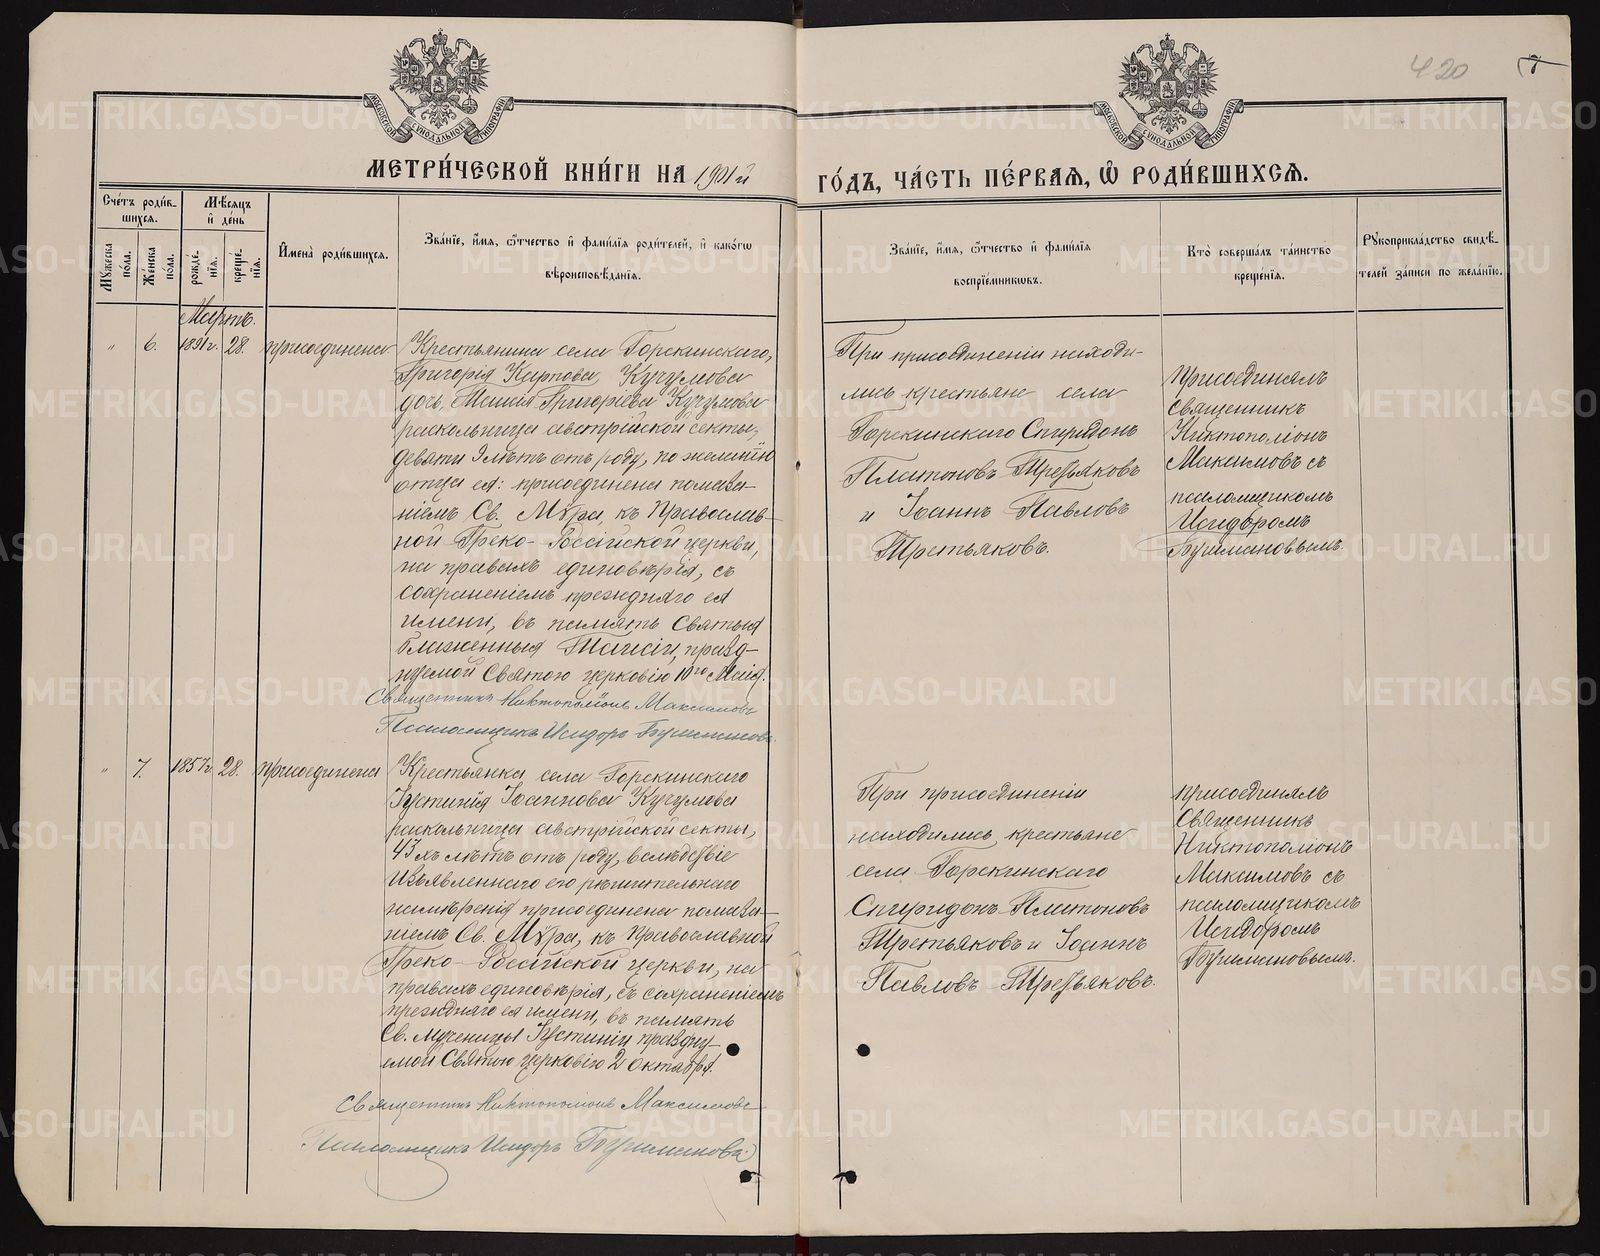 420
МОСКОВСКОЙ СУНОДАЛЬНОЙ ТИПОГРАФІИ
МОСКОВСКОЙ СУНОДАЛЬНОЙ ТИПОГРАФІИ
МЕТРИ́ЧЕСКОЙ КНИ́ГИ НА 1901й ГО́ДЪ, ЧА́СТЬ ПЕ́РВАѦ, Ѡ҆ РОДИ́ВШИХСѦ.
Сче́тъ роди́в-
шихсѧ.
Мѣ́сѧцъ
и҆ де́нь
Мꙋ́жеска
по́ла.
Же́нска
по́ла.
рожде́-
нїѧ.
креще́-
нїѧ.
И҆мена̀ роди́вшихсѧ.
Зва́нїе, и҆́мѧ, ѻ҆́тчество и҆ фами́лїѧ роди́телей, и҆ како́гѡ
вѣроисповѣ́данїѧ.
Зва́нїе, и҆́мѧ, ѻ҆́тчество и҆ фами́лїѧ
воспрїе́мникѡвъ.
Кто̀ соверша́лъ та́инство
креще́нїѧ.
Рꙋкоприкла́дство свидѣ́-
телей за́писи по жела́нїю.
Мартъ.
" 6. 1891 г. 28. присоединена
Крестьянина села Горскинскаго,
Григорія Карпова Кучумова
дочь, Таисія Григоріева Кучумова
раскольница австрійской секты,
девяти 9 лѣтъ отъ роду, по желанію
отца ея: присоединена помаза-
ніемъ Св. Мѵра, къ Православ-
ной Греко-Россійской церкви,
на правахъ единовѣрія, съ
сохраненіемъ прежняго ея
имени, въ память Святыя
блаженныя Таисіи, празд-
нуемой Святою церковію 10го Маія.
Священникъ Никтополіонъ Максимовъ
Псаломщикъ Исидоръ Бушмановъ.
При присоединеніи находи-
лись крестьяне села
Горскинскаго Спиридонъ
Платоновъ Третьяковъ
и Іоаннъ Павловъ
Третьяковъ.
присоединялъ
священникъ
Никтополіонъ
Максимовъ съ
псаломщикомъ
Исидоромъ
Бушмановымъ.
" 7. 1857 г 28. присоединена
Крестьянка села Горскинскаго
Іустинія Іоаннова Кучумова
раскольница австрійской секты,
43хъ лѣтъ отъ роду, вслѣдствіе
изъявленнаго его рѣшительнаго
намѣренія присоединена помаза-
ніемъ Св. Мѵра, къ Православной
Греко-Россійской церкви, на
правахъ единовѣрія, съ сохраненіемъ
прежняго ея имени, въ память
Св. Мученицы Іустиніи праздну-
емой Святою церковію 2 Октября.
Священникъ Никтополіонъ Максимовъ
Псаломщикъ Исидоръ Бушмановъ.
При присоединеніи
находились крестьяне
села Горскинскаго
Спиридонъ Платоновъ
Третьяковъ и Іоаннъ
Павловъ Третьяковъ.
присоединялъ
Священникъ
Никтополіонъ
Максимовъ съ
псаломщикомъ
Исидоромъ
Бушмановымъ.
METRIKI.GASO-URAL.RU